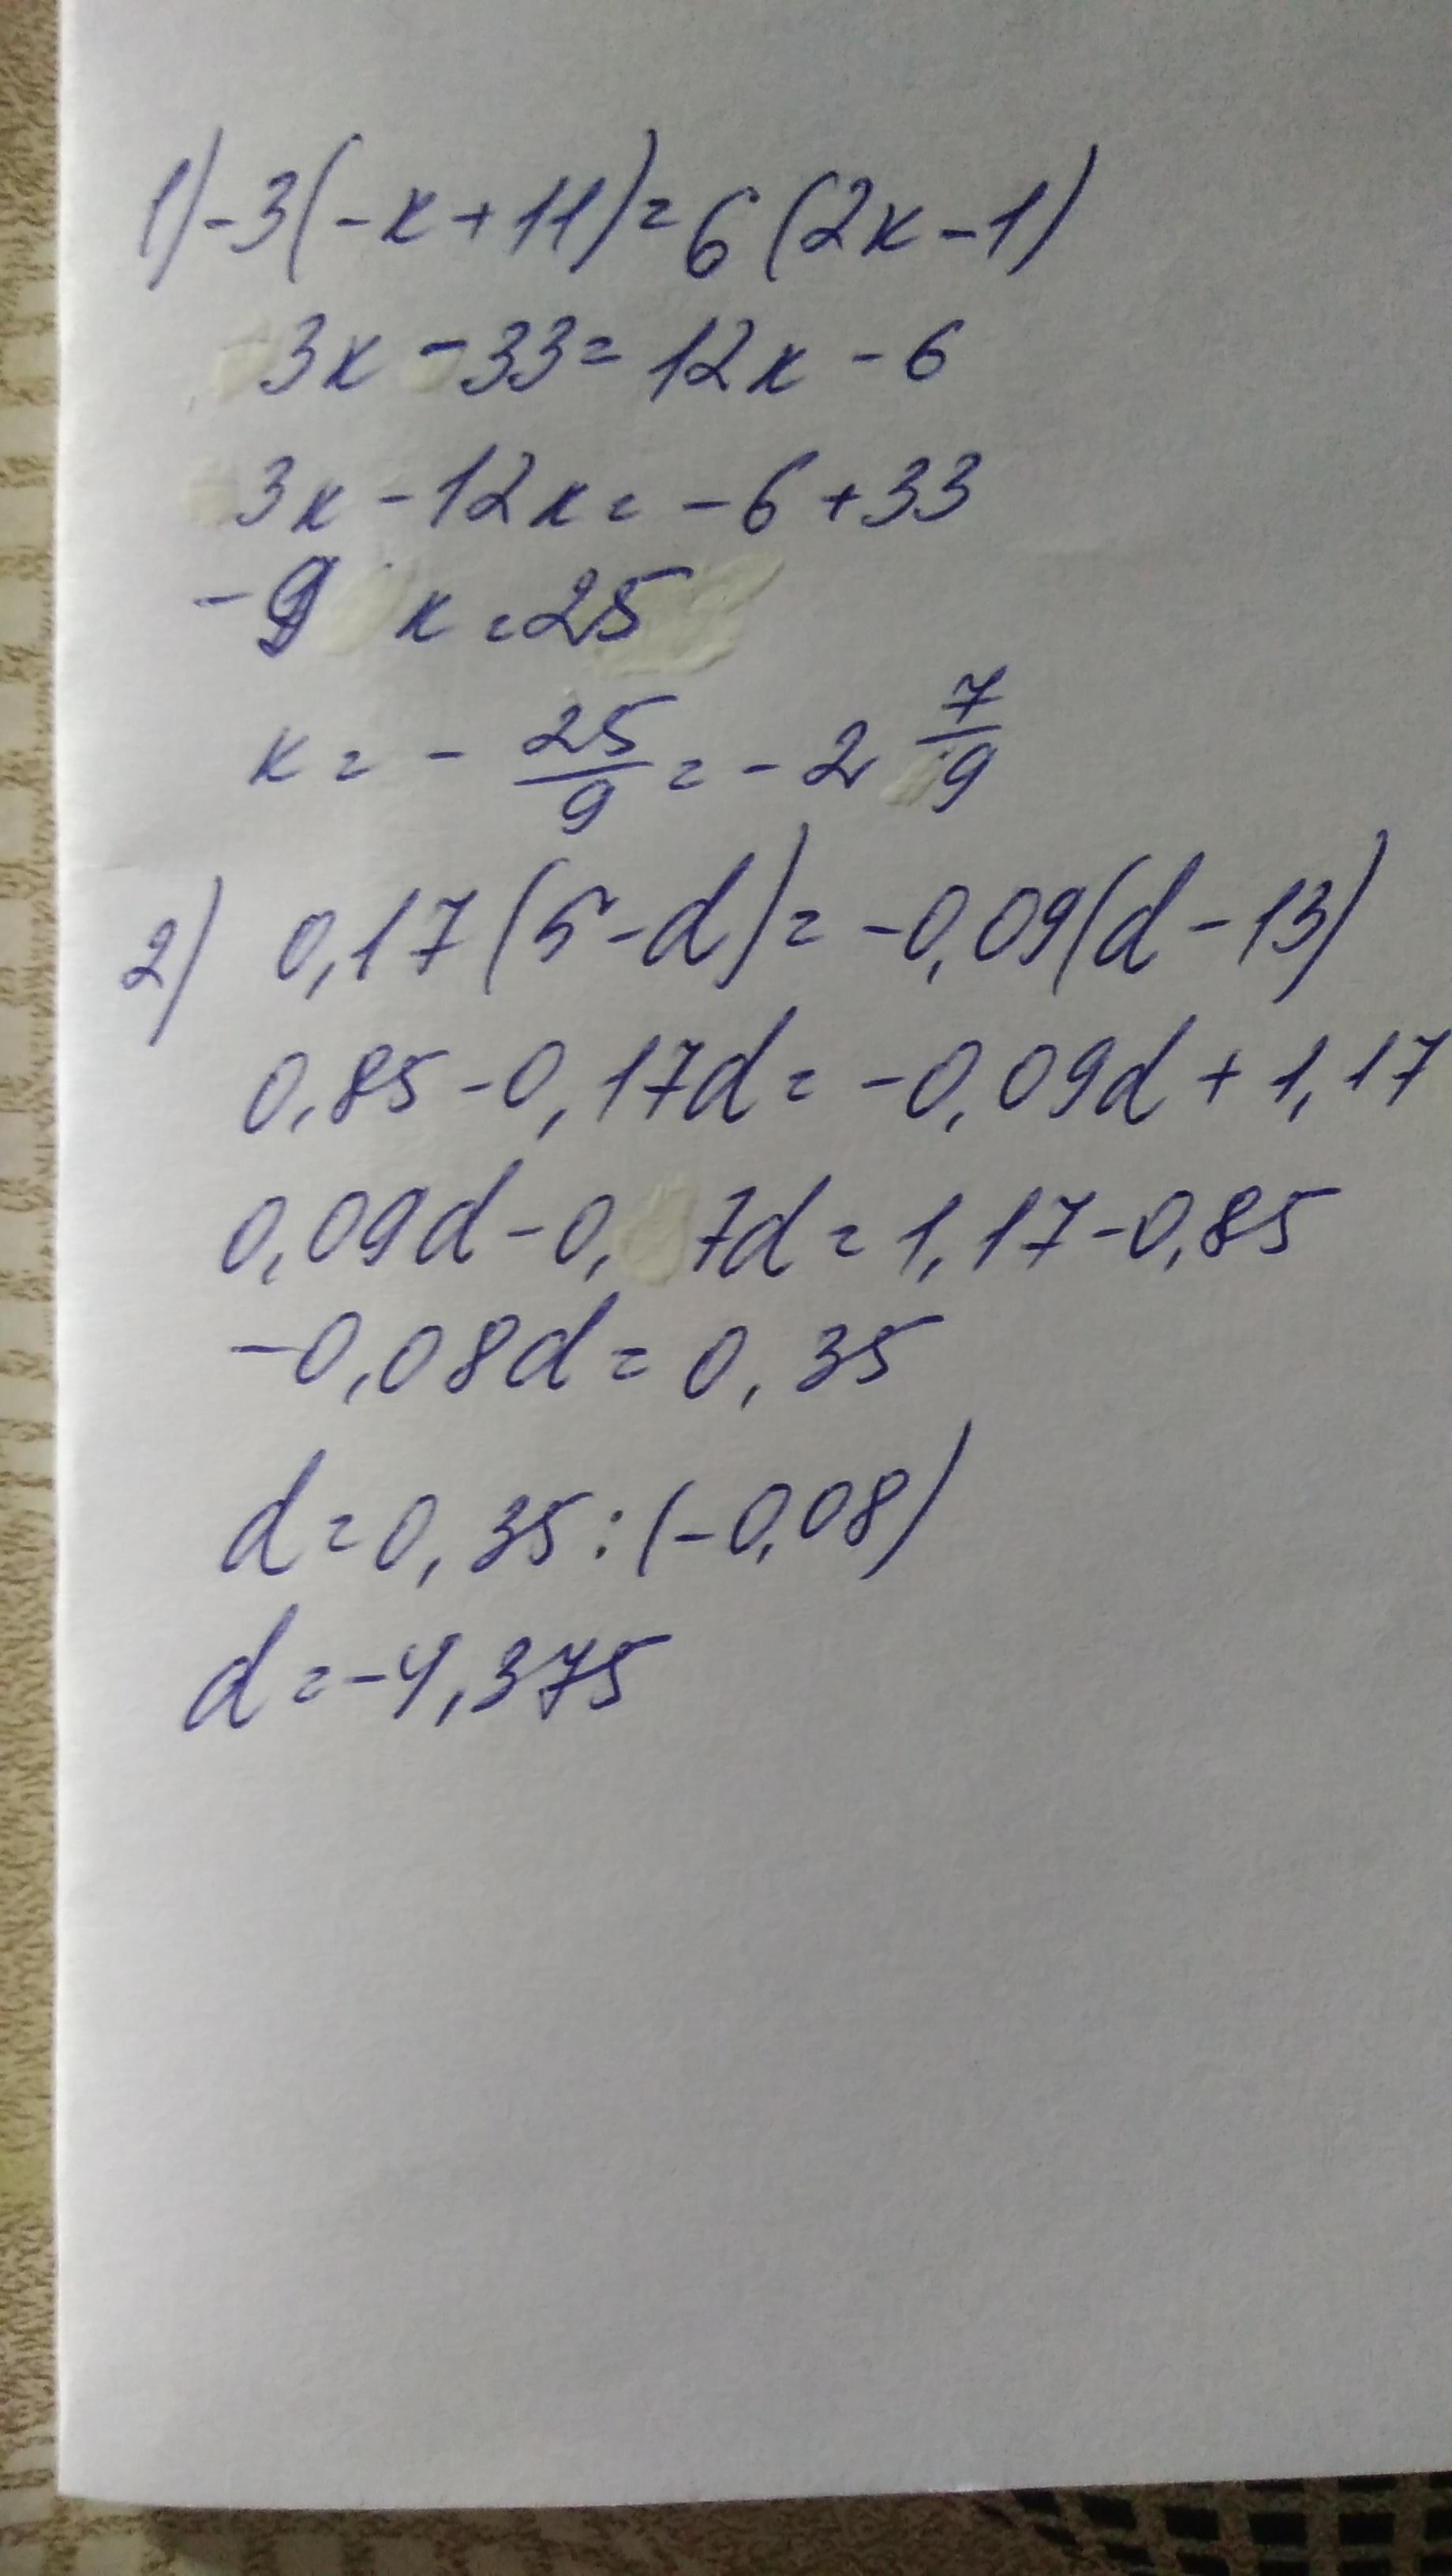 1) -3(-x+11)=6(2x-1)
3x-33=12x-6
3x-12x=-6+33
-9x=25
x=-25/9=-2 7/9
2) 0,17(5-d)=-0,09(d-13)
0,85-0,17d=-0,09d+1,17
0,09d-0, 7d=1,17-0,85
-0,08d=0,35
d=0,35:(-0,08)
d=-4,375